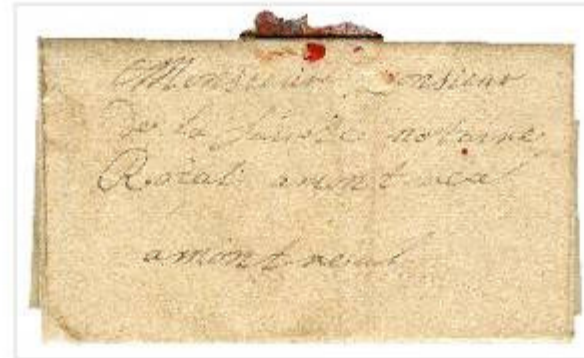 Monsieur Monsieur
De la Saude notaire
Roial amont real
amont real